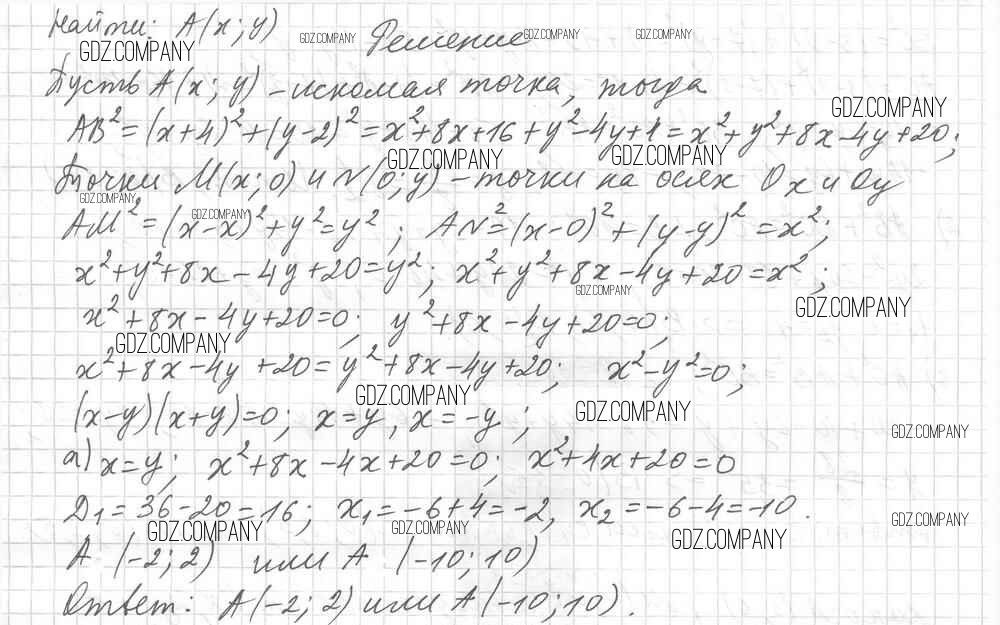 Найти: A(x; y)
GDZ.COMPANY GDZ.COMPANY Решение GDZ.COMPANY GDZ.COMPANY
Пусть A(x; y) – искомая точка, тогда
GDZ.COMPANY
AB² = (x+4)² + (y-2)² = x²+8x+16+y²-4y+4 = x²+y²+8x-4y+20;
GDZ.COMPANY GDZ.COMPANY
Точки M(x; 0) и N(0; y) – точки на осях Ox и Oy
GDZ.COMPANY GDZ.COMPANY
AM² = (x-x)² + y² = y²; AN² = (x-0)² + (y-y)² = x²;
x²+y²+8x-4y+20=y²; x²+y²+8x-4y+20=x²;
GDZ.COMPANY GDZ.COMPANY
x²+8x-4y+20=0; y²+8x-4y+20=0;
GDZ.COMPANY
x²+8x-4y+20=y²+8x-4y+20; x²-y²=0;
GDZ.COMPANY GDZ.COMPANY
(x-y)(x+y)=0; x=y, x=-y;
GDZ.COMPANY
а) x=y; x²+8x-4x+20=0; x²+4x+20=0
D₁=36-20=16; x₁=-6+4=-2, x₂=-6-4=-10.
GDZ.COMPANY GDZ.COMPANY GDZ.COMPANY GDZ.COMPANY
A (-2; 2) или A (-10; 10)
Ответ: A(-2; 2) или A(-10; 10).